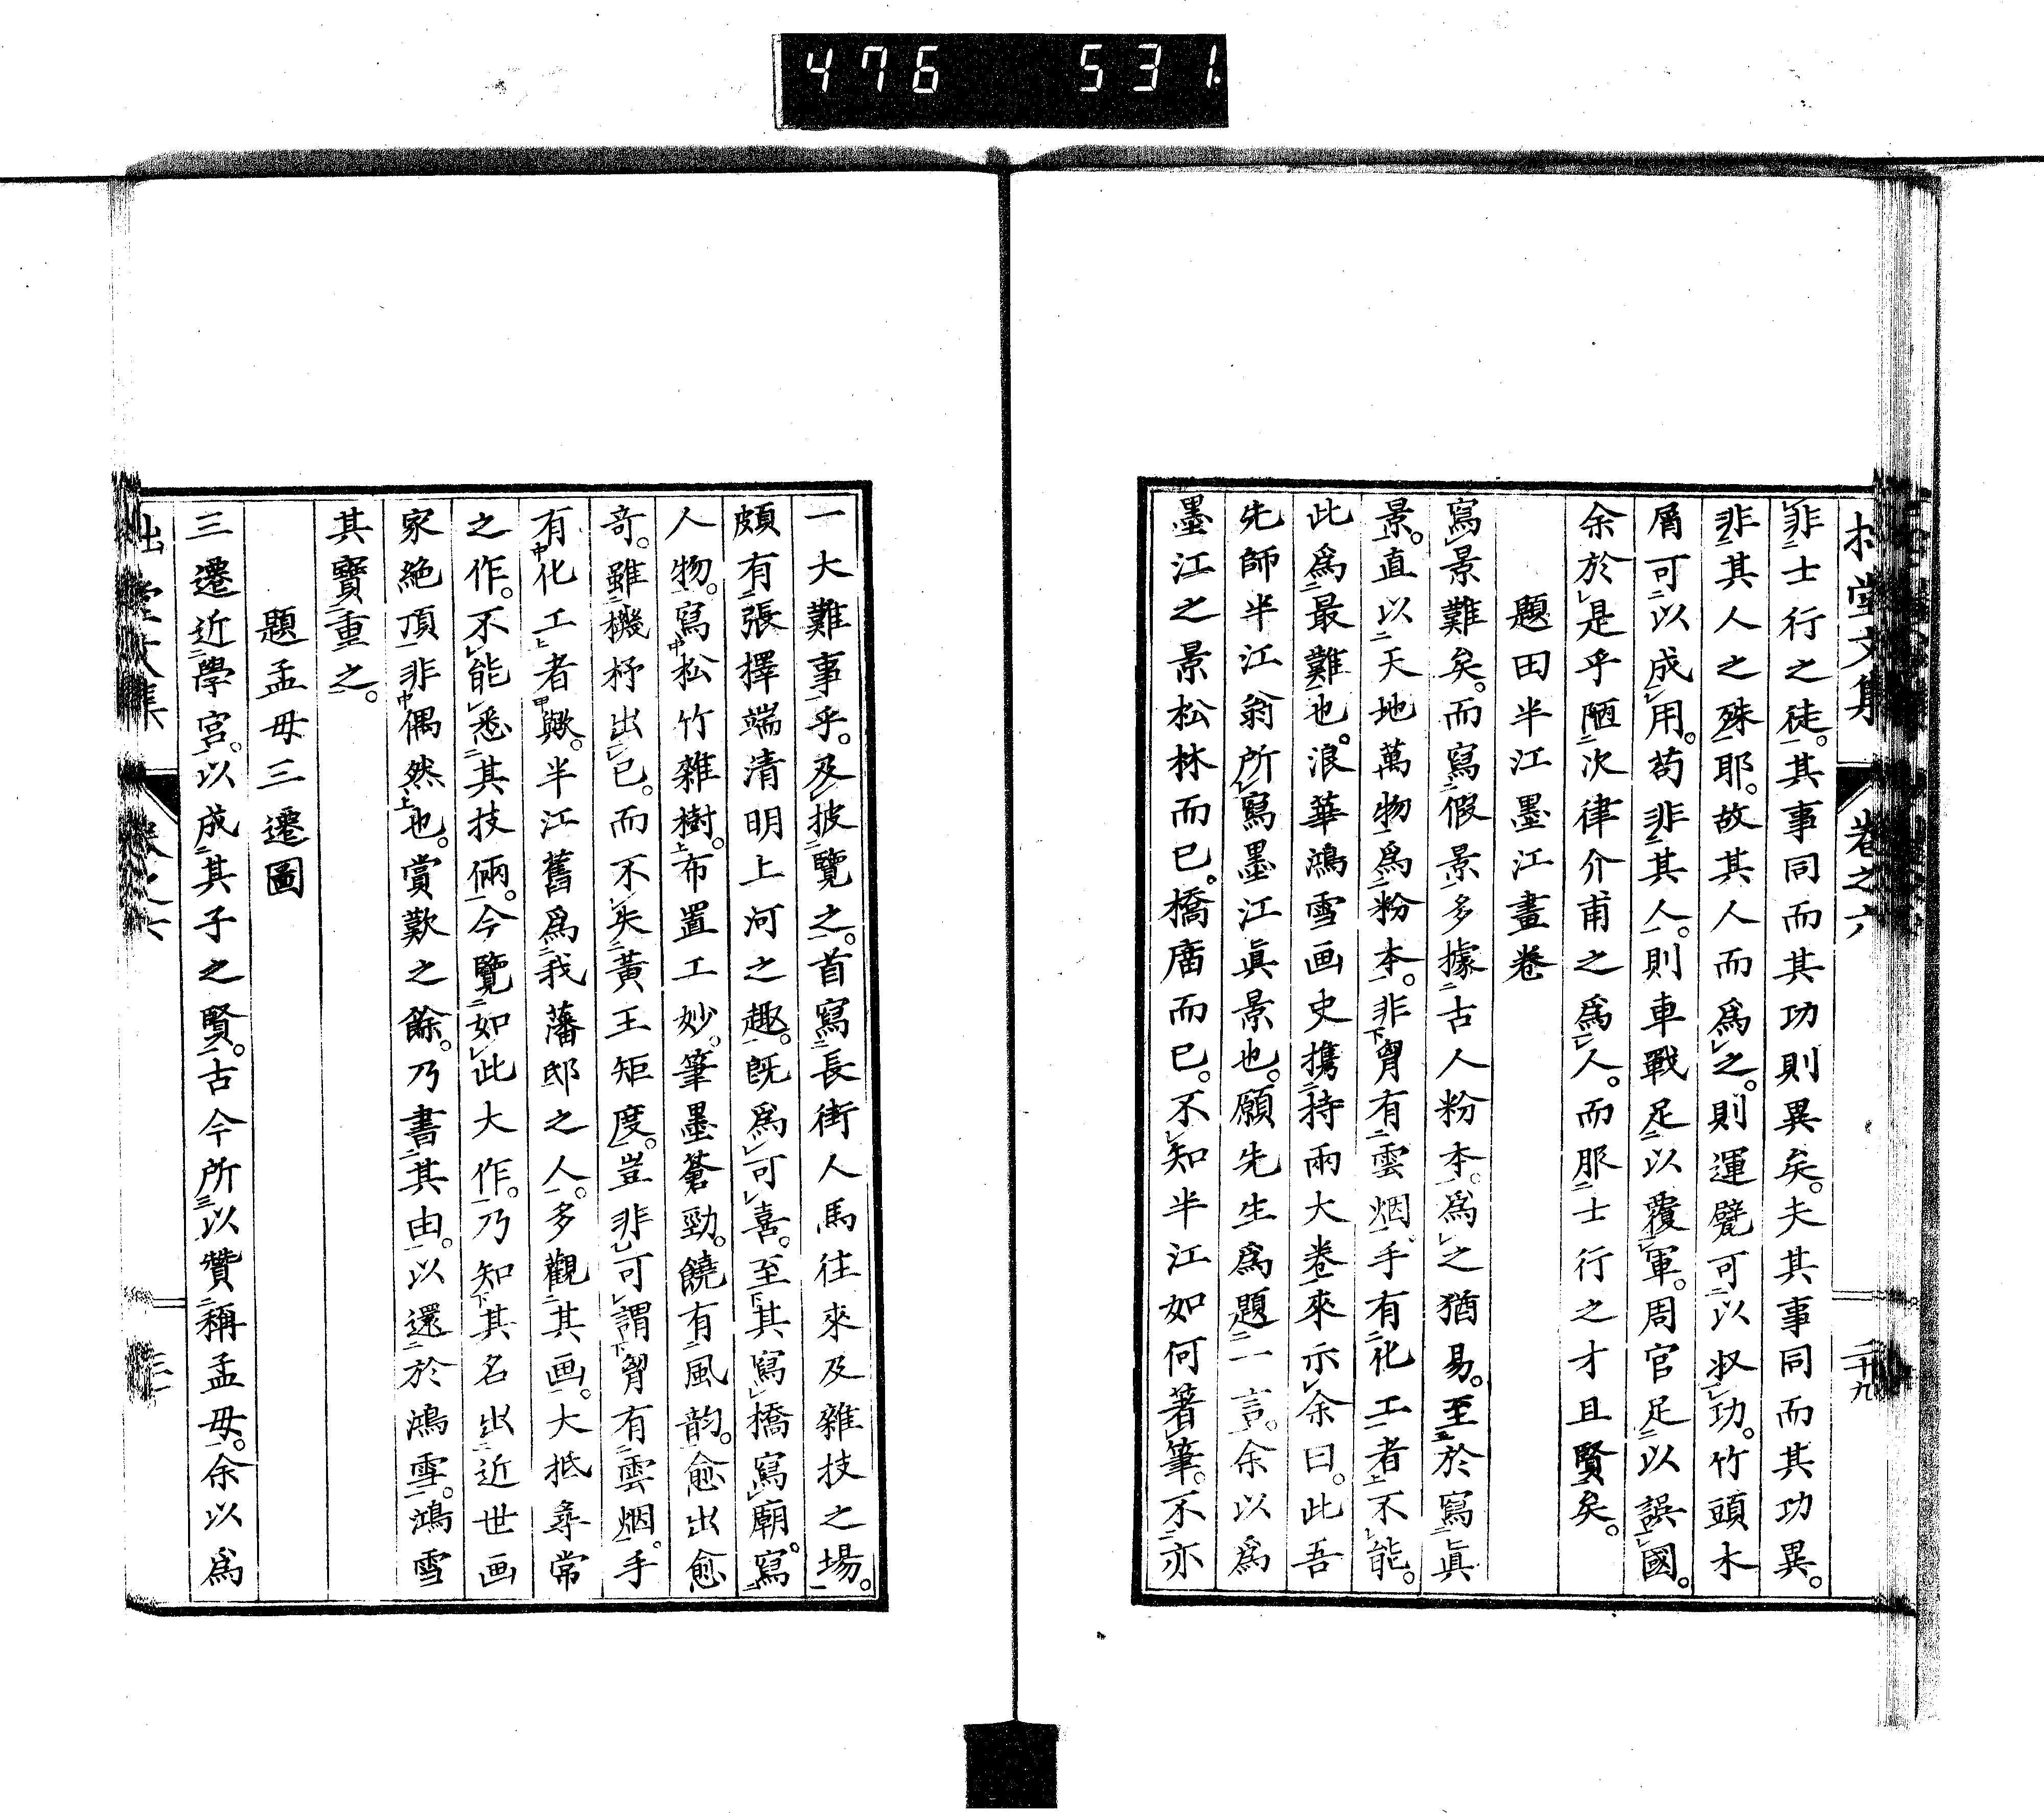 476 531
拙堂文集 卷之六 二十九
非士行之徒。其事同而其功則異矣。夫其事同而其功異。
非其人之殊耶。故其人而爲之。則運甓可以收功。竹頭木
屑可以成用。苟非其人。則車戰足以覆軍。周官足以誤國。
余於是乎陋次律介甫之爲人。而服士行之才且賢矣。
題田半江墨江畫卷
寫景難矣。而寫假景多據古人粉本。爲之猶易。至於寫眞
景。直以天地萬物爲粉本。非胷有雲烟。手有化工者不能。
此爲最難也。浪華鴻雪画史攜持兩大卷來示余曰。此吾
先師半江翁所寫墨江眞景也。願先生爲題一言。余以爲
墨江之景松林而已。橋廟而已。不知半江如何著筆。不亦
一大難事乎。及披覽之。首寫長街人馬往來及雜技之場。
頗有張擇端清明上河之趣。既爲可喜。至其寫橋寫廟。寫
人物。寫松竹雜樹。布置工妙。筆墨蒼勁。饒有風韵。愈出愈
奇。雖機杼出已。而不失黃王矩度。豈非可謂胷有雲烟。手
有化工者歟。半江舊爲我藩邸之人。多觀其画。大抵尋常
之作。不能悉其技倆。今覽如此大作。乃知其名出近世画
家絶頂非偶然也。賞歎之餘。乃書其由。以還於鴻雪。鴻雪
其寶重之。
題孟母三遷圖
三遷近學宮。以成其子之賢。古今所以贊稱孟母。余以爲
拙堂文集 卷之六 三十